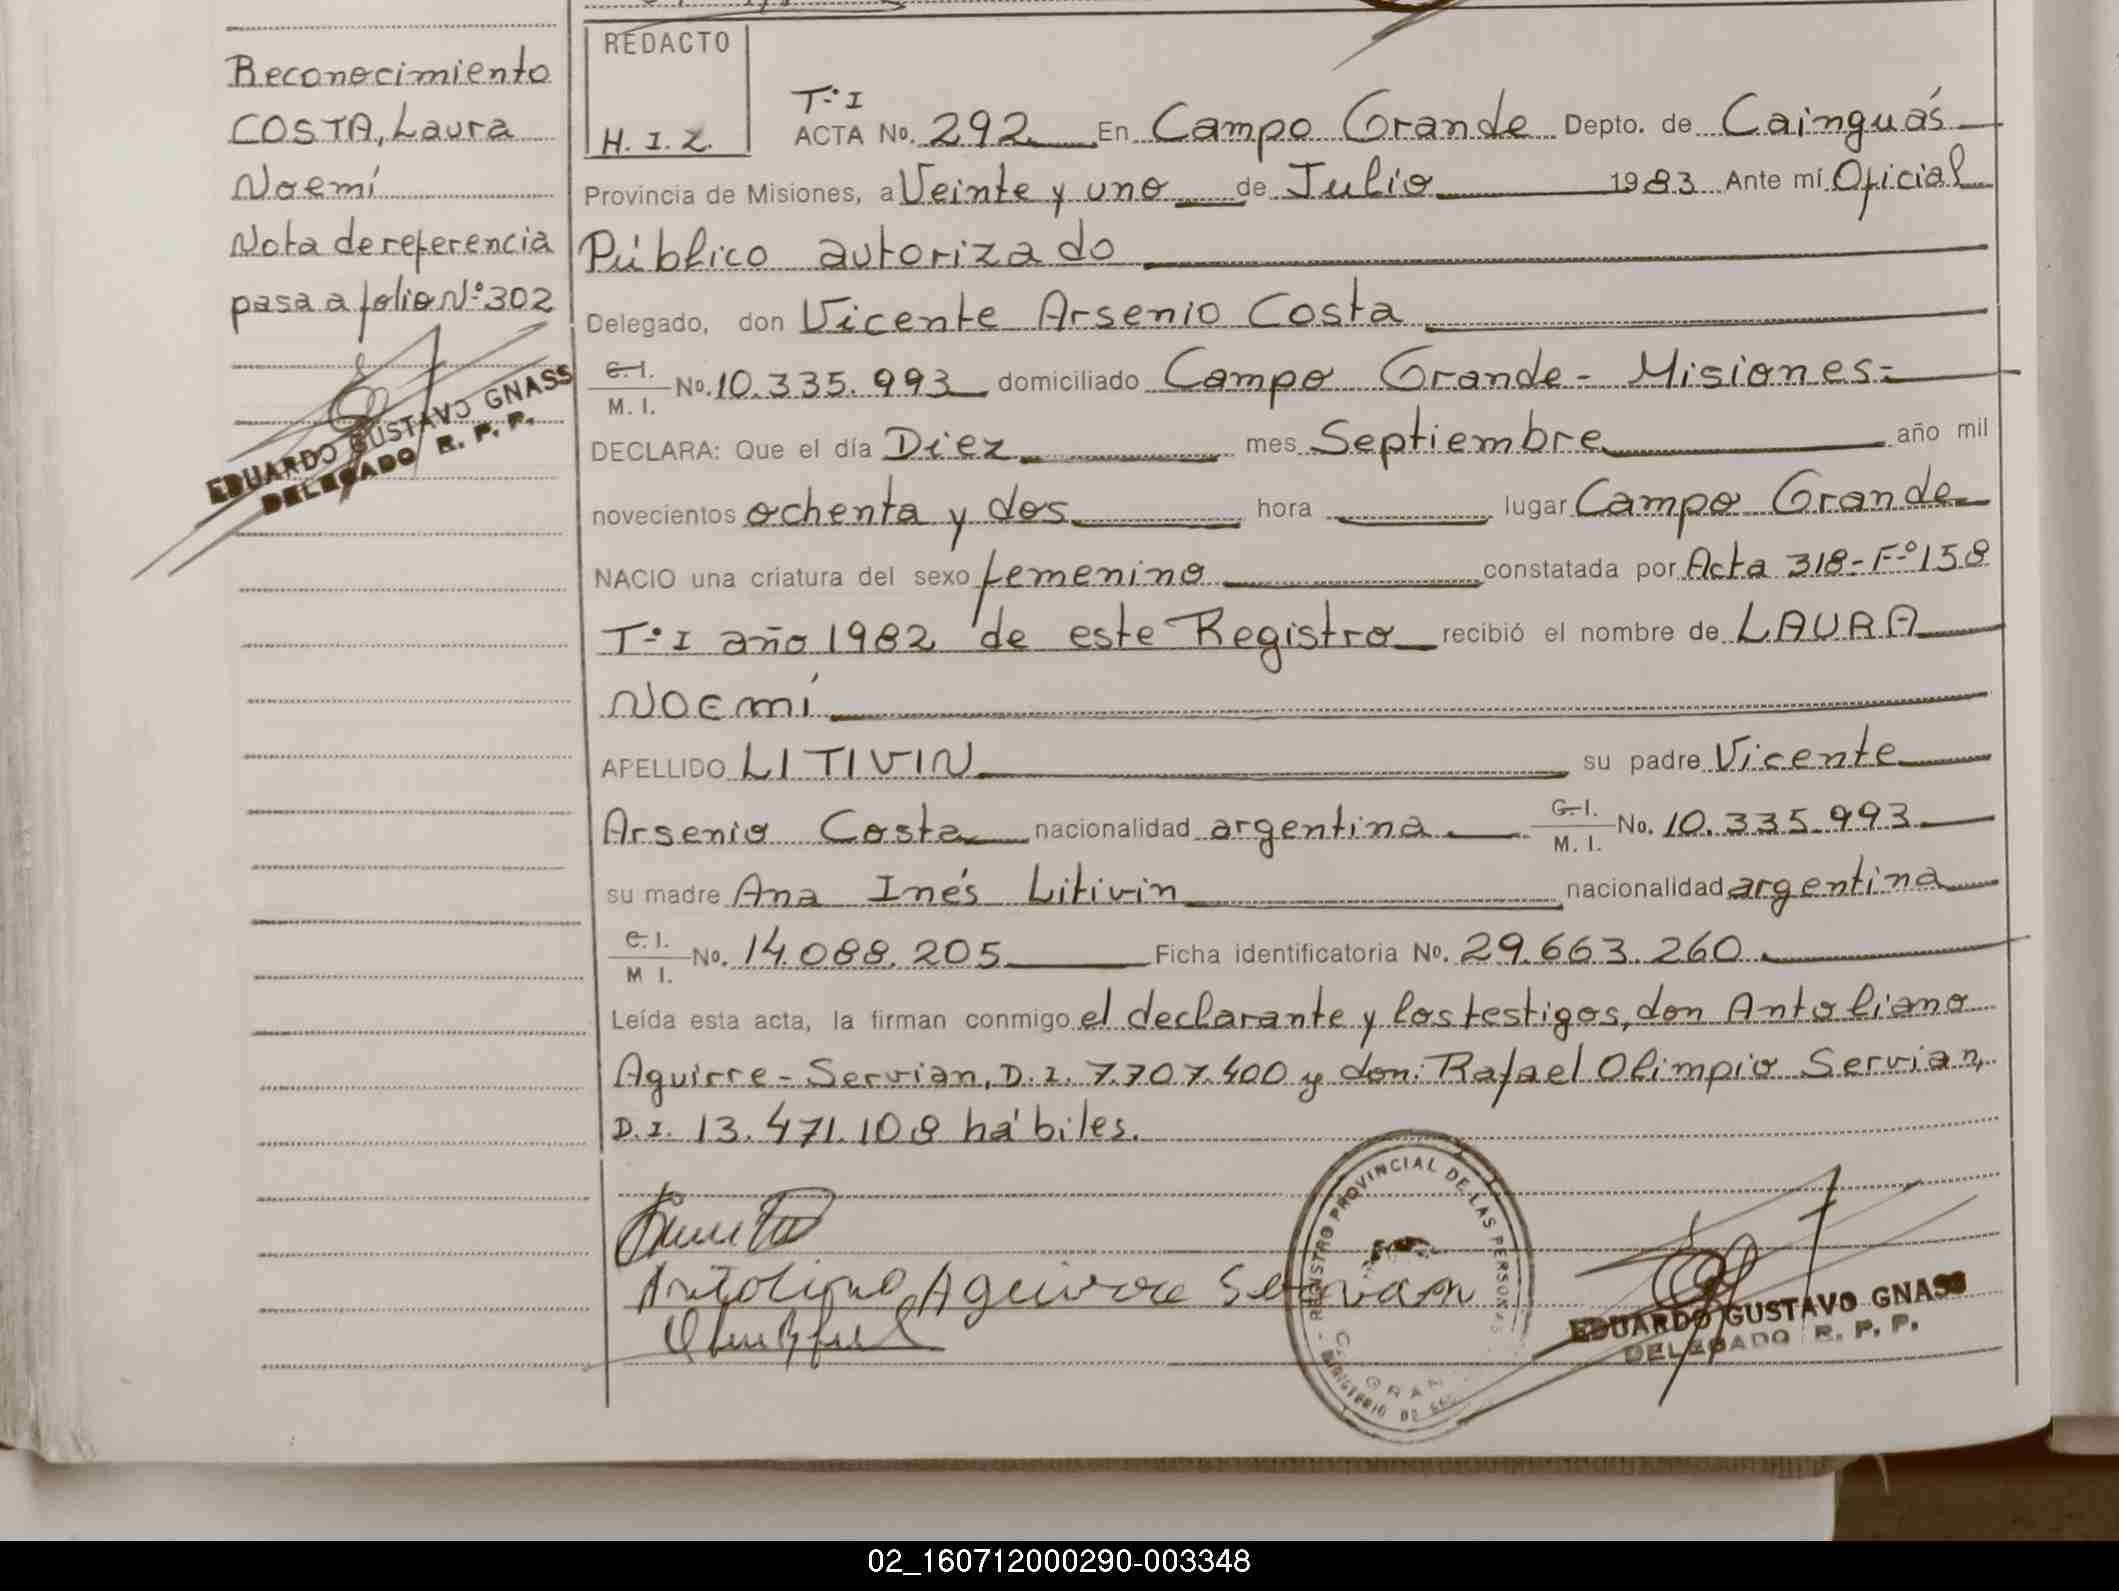 Reconocimiento
COSTA, Laura
Noemí
Nota de referencia
pasa a folio Nº 302
EDUARDO GUSTAVO GNASS
DELEGADO R. P. P.
REDACTO
H. I. Z.
Tº I
ACTA No. 292 En Campo Grande Depto. de Cainguás
Provincia de Misiones, a Veinte y uno de Julio 1983 Ante mí Oficial
Público autorizado
Delegado, don Vicente Arsenio Costa
C. I. / M. I. No. 10.335.993 domiciliado Campo Grande - Misiones.-
DECLARA: Que el día Diez mes Septiembre año mil
novecientos ochenta y dos hora lugar Campo Grande
NACIO una criatura del sexo femenino constatada por Acta 318-Fº 158
Tº I año 1982 de este Registro recibió el nombre de LAURA
NOEMÍ
APELLIDO LITIVIN su padre Vicente
Arsenio Costa nacionalidad argentina C. I. / M. I. No. 10.335.993
su madre Ana Inés Litivin nacionalidad argentina
C. I. / M I. No. 14.088.205 Ficha identificatoria No. 29.663.260
Leída esta acta, la firman conmigo el declarante y los testigos, don Antoliano
Aguirre-Servian, D.I. 7.707.400 y don: Rafael Olimpio Servian,
D.I. 13.471.108 hábiles.
Aguirre Servian
REGISTRO PROVINCIAL DE LAS PERSONAS
MINISTERIO DE
C. GRAN
EDUARDO GUSTAVO GNASS
DELEGADO R. P. P.
02_160712000290-003348